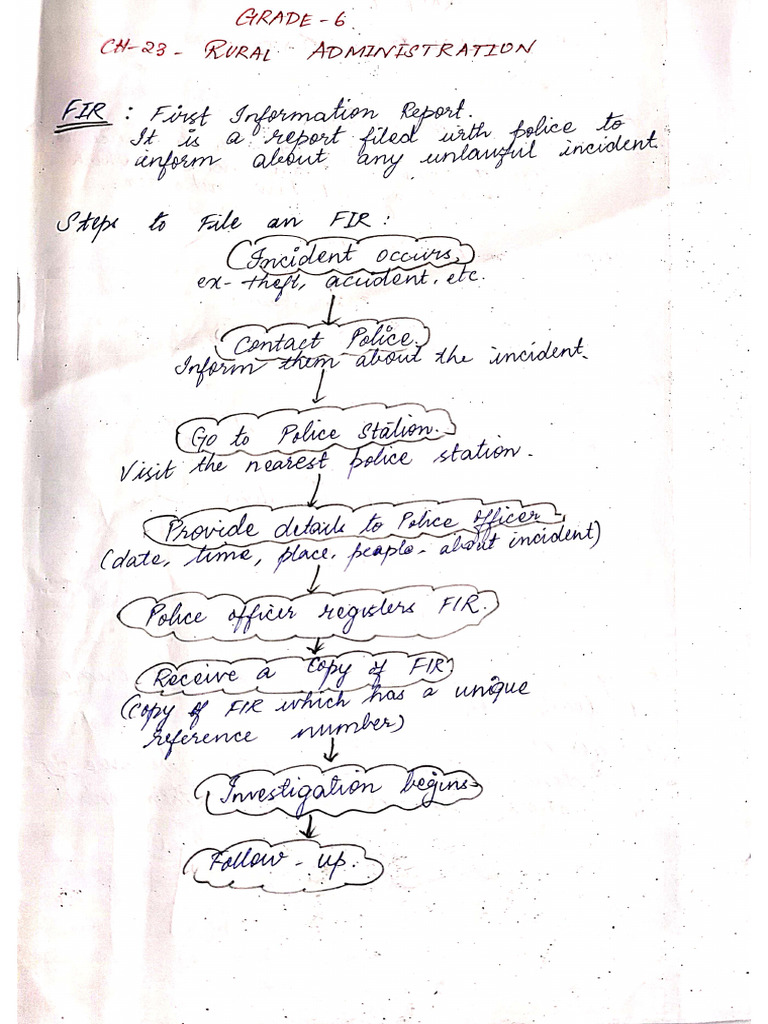 GRADE-6
CH-23- RURAL ADMINISTRATION
FIR : First Information Report.
It is a report filed with police to
inform about any unlawful incident.
Steps to File an FIR:
Incident occurs,
ex- theft, accident, etc.
Contact Police.
Inform them about the incident.
Go to Police Station.
Visit the nearest police station.
Provide details to Police officer-
(date, time, place, people- about incident)
Police officer registers FIR.
Receive a Copy of FIR
(Copy of FIR which has a unique
reference number)
Investigation begins-
Follow-up.